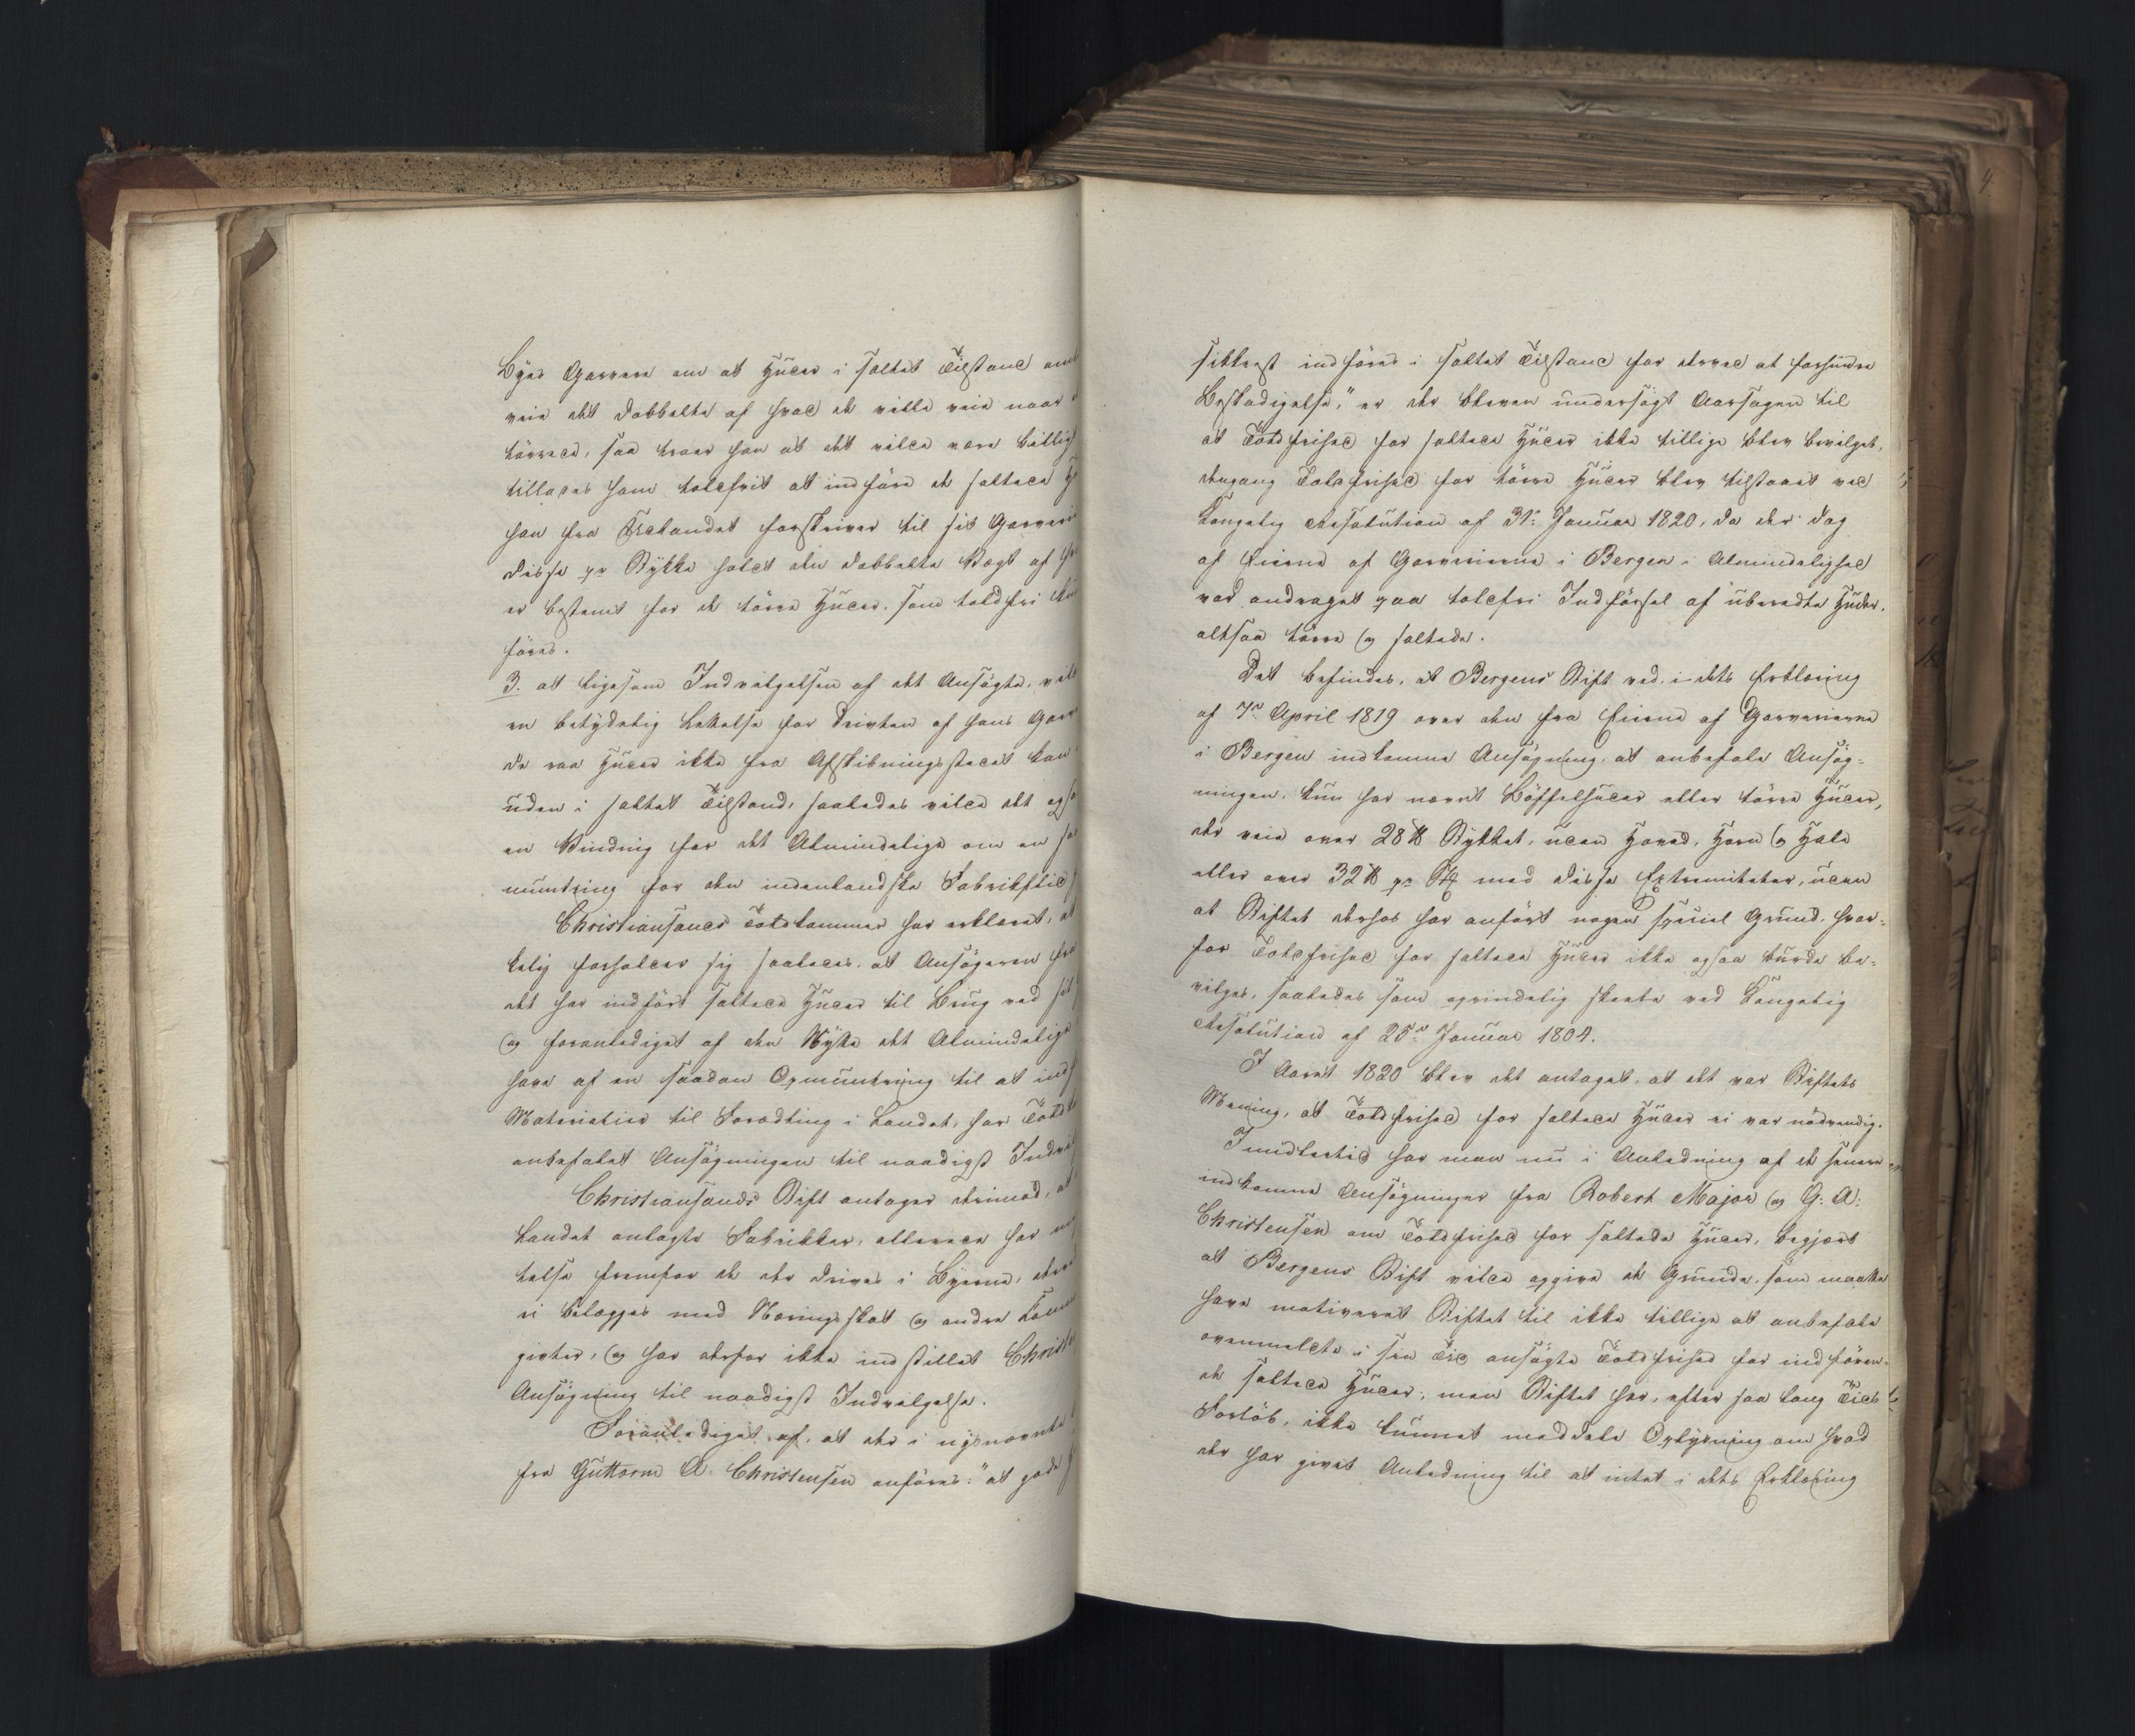 Byes Garvere om at Huder i saltet Tilstand
veie det dobbelte af hvad de ville veie naar
tørrede, saa troer han at det vilde være billigt
tillades ham toldfrit at indføre de saltede
han fra Udlandet forskriver til sit Garveri
disse pr Stykke holdt den dobbelte Vægt af
er bestemt for de tørre Huder, som toldfri
føres.
3. at ligesom Indvilgelsen af det Ansøgte, vil
en betydelig Lettelse for Driften af hans
da raa Huder ikke fra Afskibningsstedet kan
uden i saltet Tilstand, saaledes vilde det
en Vinding for det Almindelige om en
muntring for den indenlandske Fabrikflid
Christiansands Toldkammer har erklæret, at
kelig forholder sig saaledes, at Ansøgeren
det har indført saltede Huder til Brug ved sit
og foranlediget af den Nytte det Almindelige
have af en saadan Opmuntring til at
Materialier til Forædling i Landet, har
anbefalet Ansøgningen til naadigst
Christiansands Stift antager derimod, at
Landet anlagte Fabrikker, allerede har
telse fremfor de der drives i Byerne,
ei belægges med Næringsskat og andre
givter, og har derfor ikke indstillet
Ansøgning til naadigst Indvilgelse.
Foranlediget af, at der i nysnævnte
fra Guttorm A. Christensen anføres: "at
sikkrest indføres i saltet Tilstand for derved at forhindre
Beskadigelse," er der bleven undersøgt Aarsagen til
at Toldfrihed for saltede Huder ikke tillige blev bevilget,
dengang Toldfrihed for tørre Huder blev tilstaaet ved
Kongelig Resolution af 31te Januar 1820, da der dog
af Eierne af Garverierne i Bergen i Almindelighed
var andraget paa toldfri Indførsel af uberedte Huder,
altsaa tørre og saltede.
Det befindes, at Bergens Stift ved, i dets Erklæring
af 7de April 1819 over den fra Eierne af Garverierne
i Bergen indkomne Ansøgning, at anbefale Ansøg-
ningen, kun har nævnt Bøffelhuder eller tørre Huder,
der veie over 28 ℔ Stykket, uden Hoved, Horn og Hale
eller over 32 ℔ pr St med disse Extremiteter, uden
at Stiftet derhos har anført nogen speciel Grund, hvor-
for Toldfrihed for saltede Huder ikke ogsaa burde be-
vilges, saaledes som oprindelig skeete ved Kongelig
Resolution af 25de Januar 1804.
I Aaret 1820 blev det antaget, at det var Stiftets
Mening, at Toldfrihed for saltede Huder ei var nødvendig.
Imidlertid har man nu i Anledning af de senere
indkomne Ansøgninger fra Robert Major og G: A:
Christensen om Toldfrihed for saltede Huder, begjært
at Bergens Stift vilde opgive de Grunde, som maatte
have motiveret Stiftet til ikke tillige at anbefale
ovenmeldte i sin Tid ansøgte Toldfrihed for indføren-
de saltede Huder; men Stiftet har, efter saa lang Tids
Forløb, ikke kunnet meddele Oplysning om hvad
der har givet Anledning til at intet i dets Erklæring